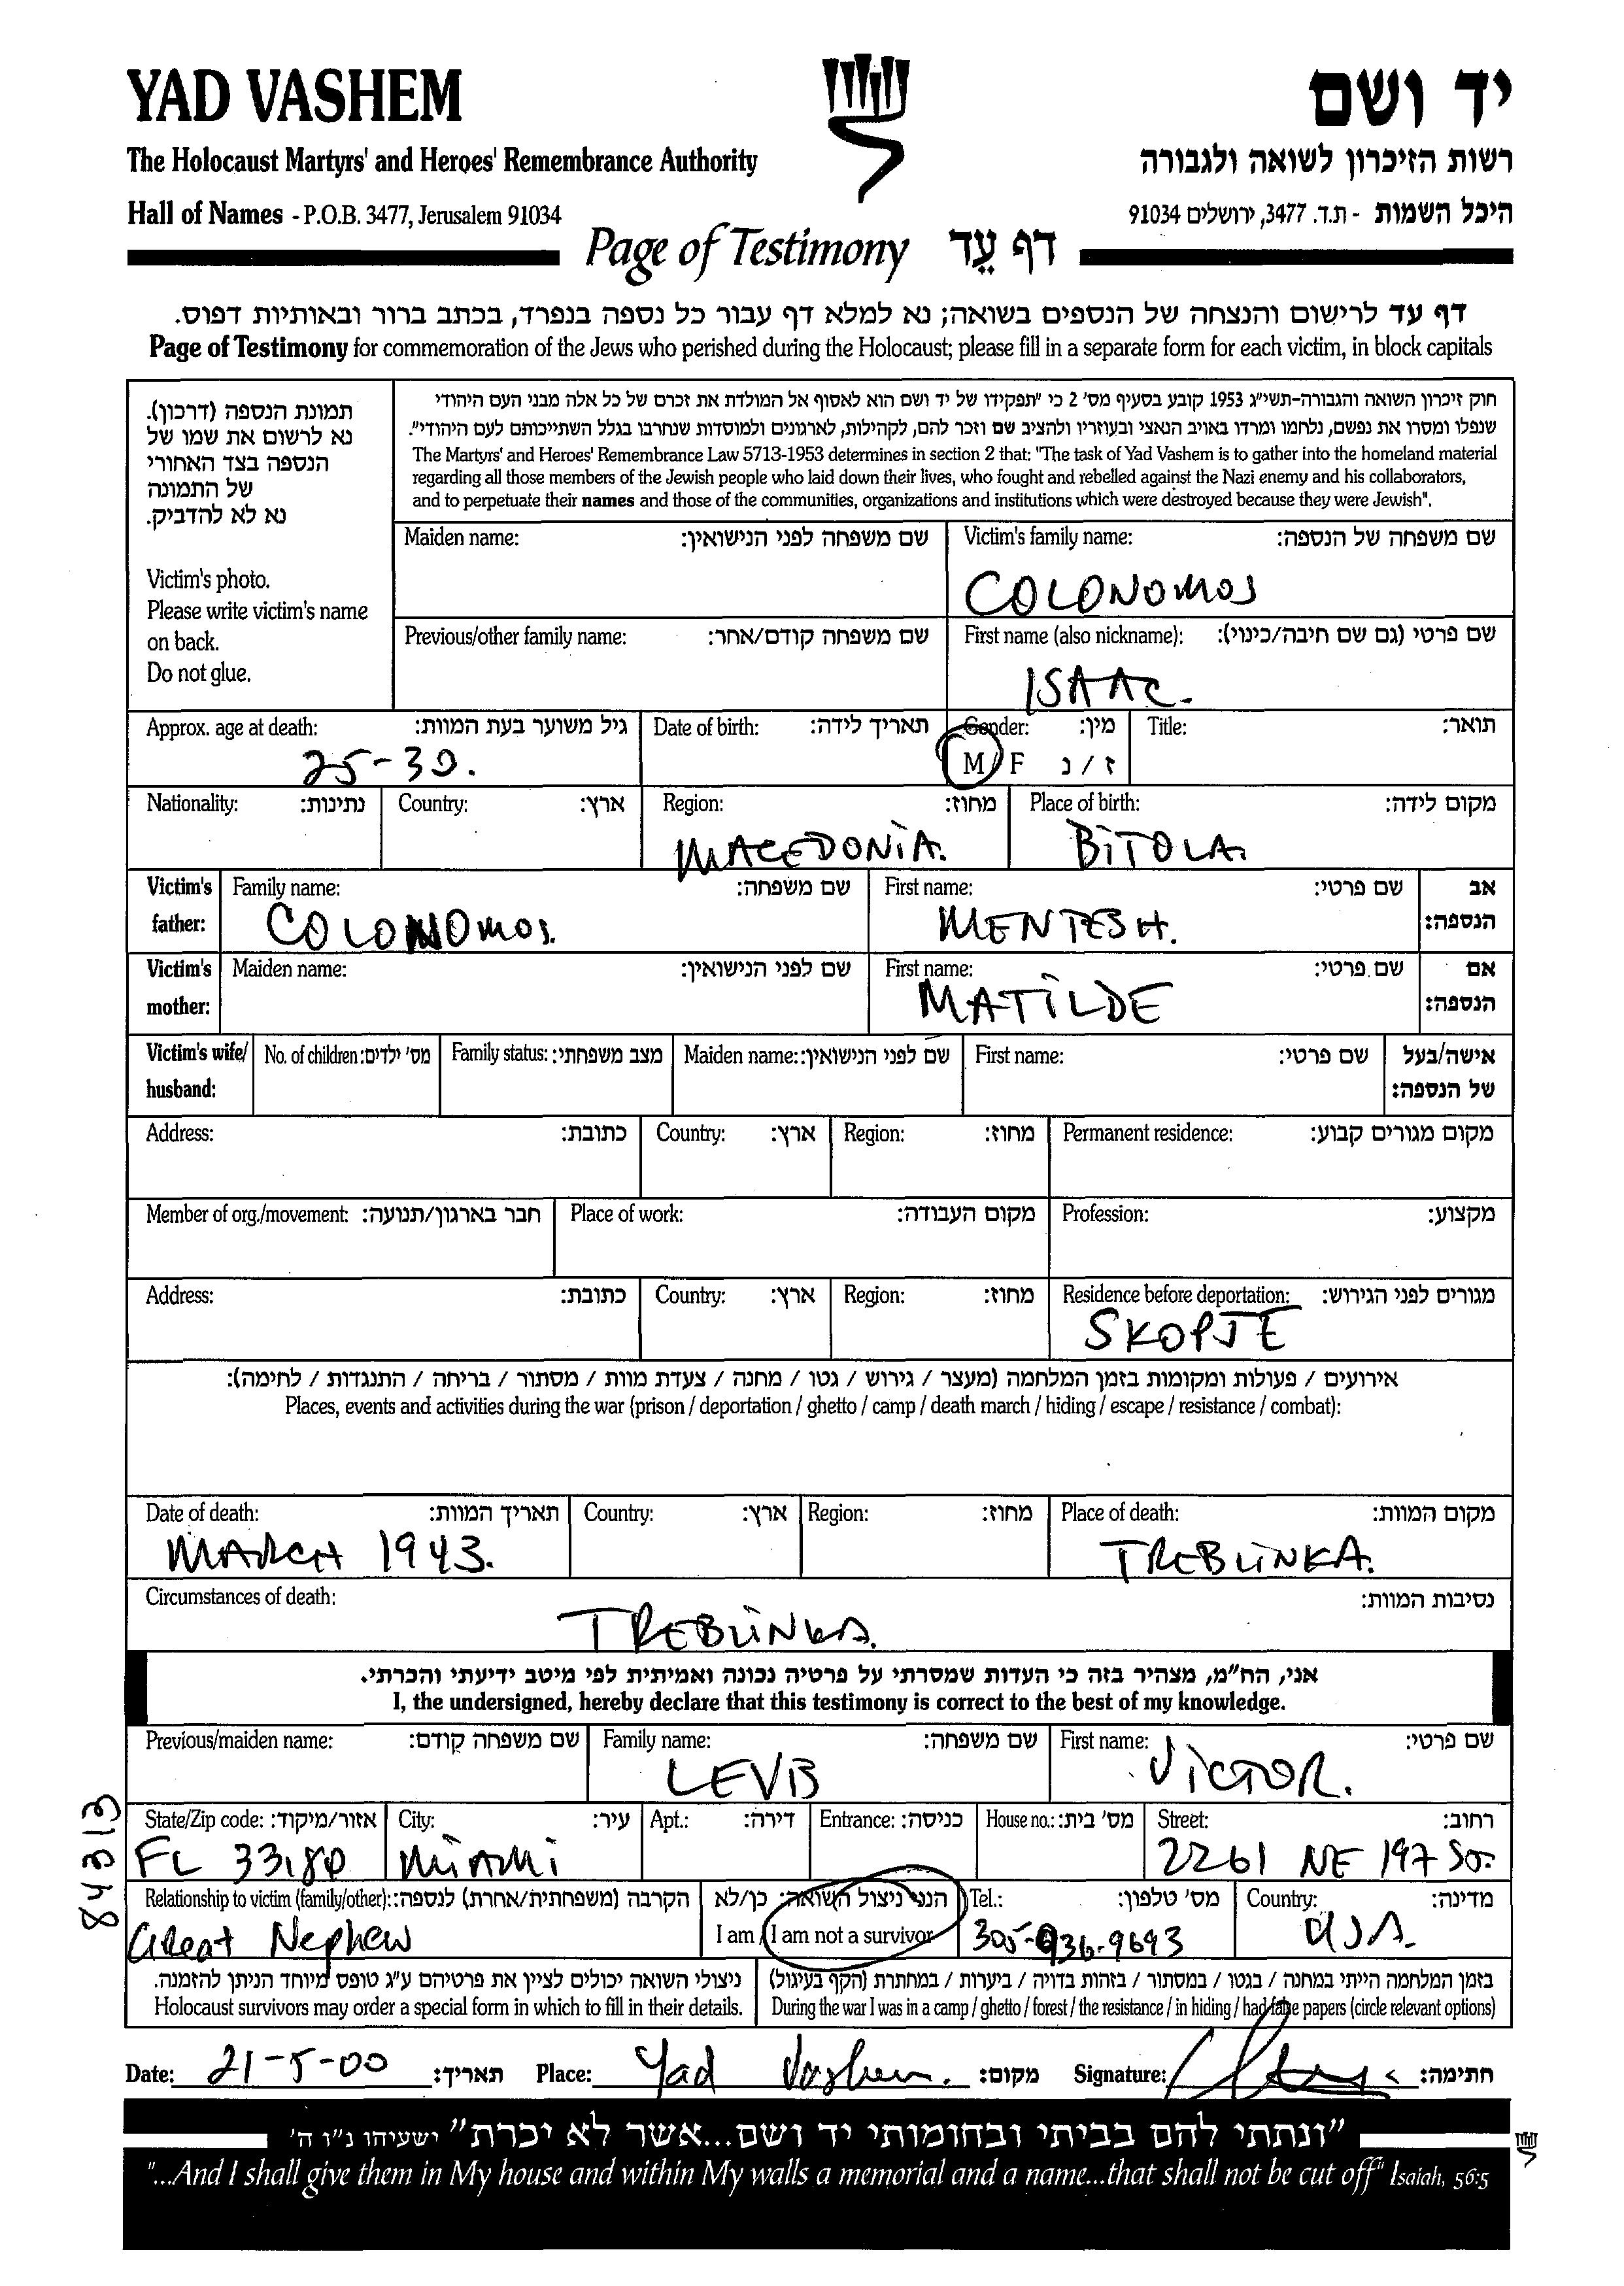 YAD VASHEM
יד ושם
The Holocaust Martyrs' and Heroes' Remembrance Authority
רשות הזיכרון לשואה ולגבורה
Hall of Names - P.O.B. 3477, Jerusalem 91034
היכל השמות - ת.ד. 3477, ירושלים 91034
Page of Testimony דף עֵד
דף עד לרישום והנצחה של הנספים בשואה; נא למלא דף עבור כל נספה בנפרד, בכתב ברור ובאותיות דפוס.
Page of Testimony for commemoration of the Jews who perished during the Holocaust; please fill in a separate form for each victim, in block capitals
תמונת הנספה (דרכון).
נא לרשום את שמו של
הנספה בצד האחורי
של התמונה
נא לא להדביק.
Victim's photo.
Please write victim's name
on back.
Do not glue.
חוק זיכרון השואה והגבורה-תשי"ג 1953 קובע בסעיף מס' 2 כי "תפקידו של יד ושם הוא לאסוף אל המולדת את זכרם של כל אלה מבני העם היהודי
שנפלו ומסרו את נפשם, נלחמו ומרדו באויב הנאצי ובעוזריו ולהציב שם וזכר להם, לקהילות, לארגונים ולמוסדות שנחרבו בגלל השתייכותם לעם היהודי".
The Martyrs' and Heroes' Remembrance Law 5713-1953 determines in section 2 that: "The task of Yad Vashem is to gather into the homeland material
regarding all those members of the Jewish people who laid down their lives, who fought and rebelled against the Nazi enemy and his collaborators,
and to perpetuate their names and those of the communities, organizations and institutions which were destroyed because they were Jewish".
Maiden name: שם משפחה לפני הנישואין:
Victim's family name: שם משפחה של הנספה:
COLONOMOS
Previous/other family name: שם משפחה קודם/אחר:
First name (also nickname): שם פרטי (גם שם חיבה/כינוי):
ISAAC.
Approx. age at death: גיל משוער בעת המוות:
25-30.
Date of birth: תאריך לידה:
Gender: מין:
M / F ז / נ
Title: תואר:
Nationality: נתינות:
Country: ארץ:
Region: מחוז:
MACEDONIA.
Place of birth: מקום לידה:
BITOLA.
Victim's father:
Family name: שם משפחה:
COLONOMOS.
First name: שם פרטי:
MENTESH.
אב הנספה:
Victim's mother:
Maiden name: שם לפני הנישואין:
First name: שם פרטי:
MATILDE
אם הנספה:
Victim's wife/husband:
No. of children: מס' ילדים:
Family status: מצב משפחתי:
Maiden name: שם לפני הנישואין:
First name: שם פרטי:
אישה/בעל של הנספה:
Address: כתובת:
Country: ארץ:
Region: מחוז:
Permanent residence: מקום מגורים קבוע:
Member of org./movement: חבר בארגון/תנועה:
Place of work: מקום העבודה:
Profession: מקצוע:
Address: כתובת:
Country: ארץ:
Region: מחוז:
Residence before deportation: מגורים לפני הגירוש:
SKOPJE
אירועים / פעולות ומקומות בזמן המלחמה (מעצר / גירוש / גטו / מחנה / צעדת מוות / מסתור / בריחה / התנגדות / לחימה):
Places, events and activities during the war (prison / deportation / ghetto / camp / death march / hiding / escape / resistance / combat):
Date of death: תאריך המוות:
MARCH 1943.
Country: ארץ:
Region: מחוז:
Place of death: מקום המוות:
TREBLINKA.
Circumstances of death: נסיבות המוות:
TREBLINKA.
אני, הח"מ, מצהיר בזה כי העדות שמסרתי על פרטיה נכונה ואמיתית לפי מיטב ידיעתי והכרתי.
I, the undersigned, hereby declare that this testimony is correct to the best of my knowledge.
Previous/maiden name: שם משפחה קודם:
Family name: שם משפחה:
First name: שם פרטי:
VICTOR.
State/Zip code: אזור/מיקוד:
FL 33180
City: עיר:
MIAMI
Apt.: דירה:
Entrance: כניסה:
House no.: מס' בית:
Street: רחוב:
2261 NE 197
Relationship to victim (family/other): הקרבה (משפחתית/אחרת) לנספה:
Great Nephew
הנני ניצול השואה: כן/לא
I am / I am not a survivor
Tel.: מס' טלפון:
305-936-9693
Country: מדינה:
USA.
ניצולי השואה יכולים לציין את פרטיהם ע"ג טופס מיוחד הניתן להזמנה.
Holocaust survivors may order a special form in which to fill in their details.
בזמן המלחמה הייתי במחנה / בגטו / במסתור / בזהות בדויה / ביערות / במחתרת (הקף בעיגול)
During the war I was in a camp / ghetto / forest / the resistance / in hiding / had false papers (circle relevant options)
84313
Date: 21-5-00 תאריך:
Place: Yad Vashem. מקום:
Signature: חתימה:
"ונתתי להם בביתי ובחומותי יד ושם...אשר לא יכרת" ישעיהו נ"ו ה'
"...And I shall give them in My house and within My walls a memorial and a name...that shall not be cut off" Isaiah, 56:5